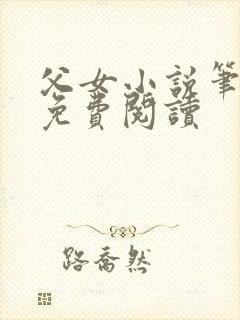 父女小說筆
免費閱讀
路喬然